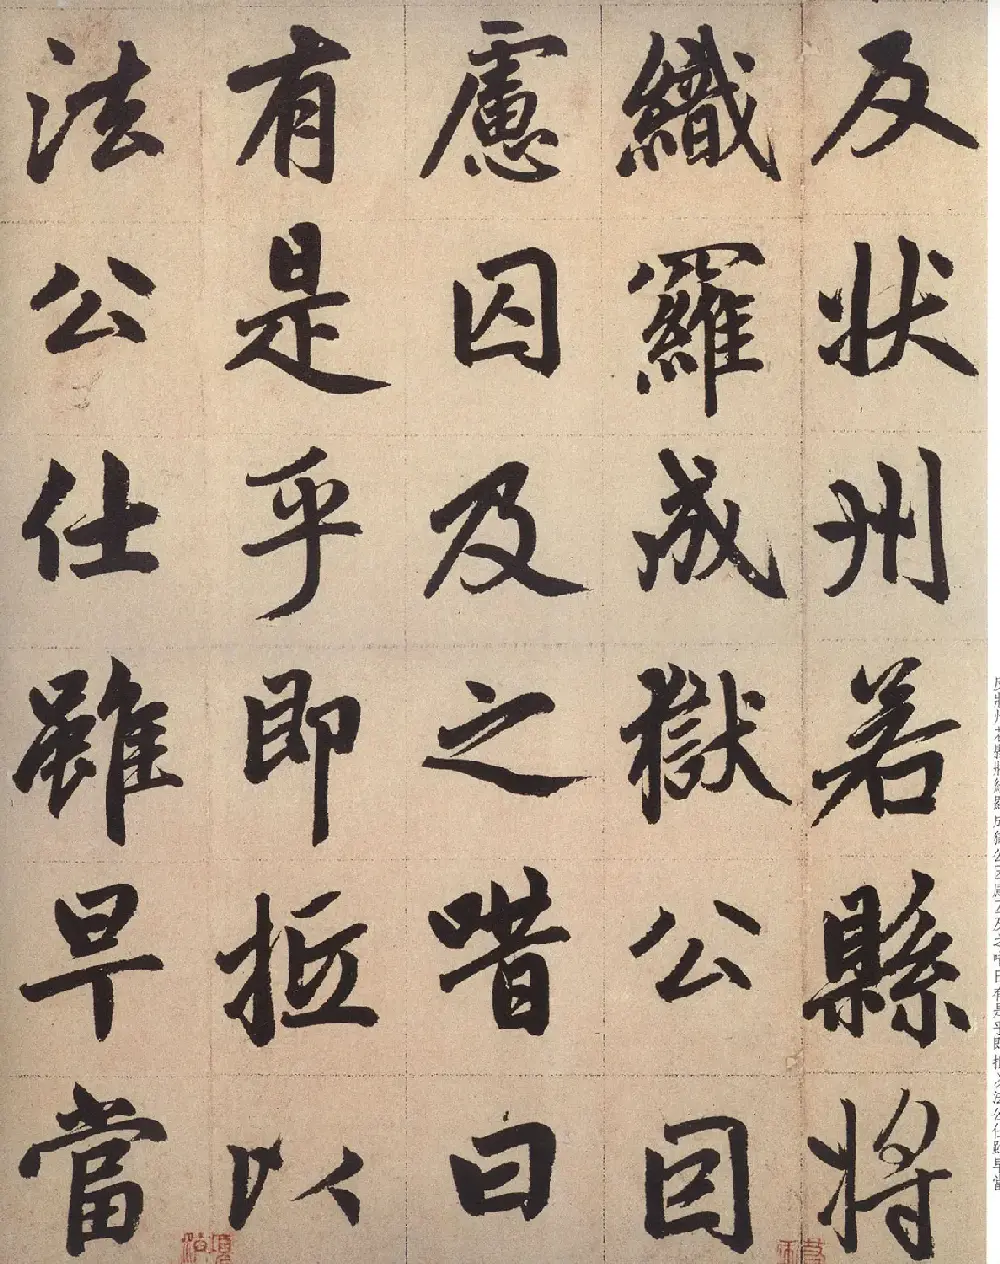 反狀州若縣將
織羅成獄公因
慮囚及之唶曰
有是乎即抵以
法公仕雖早當